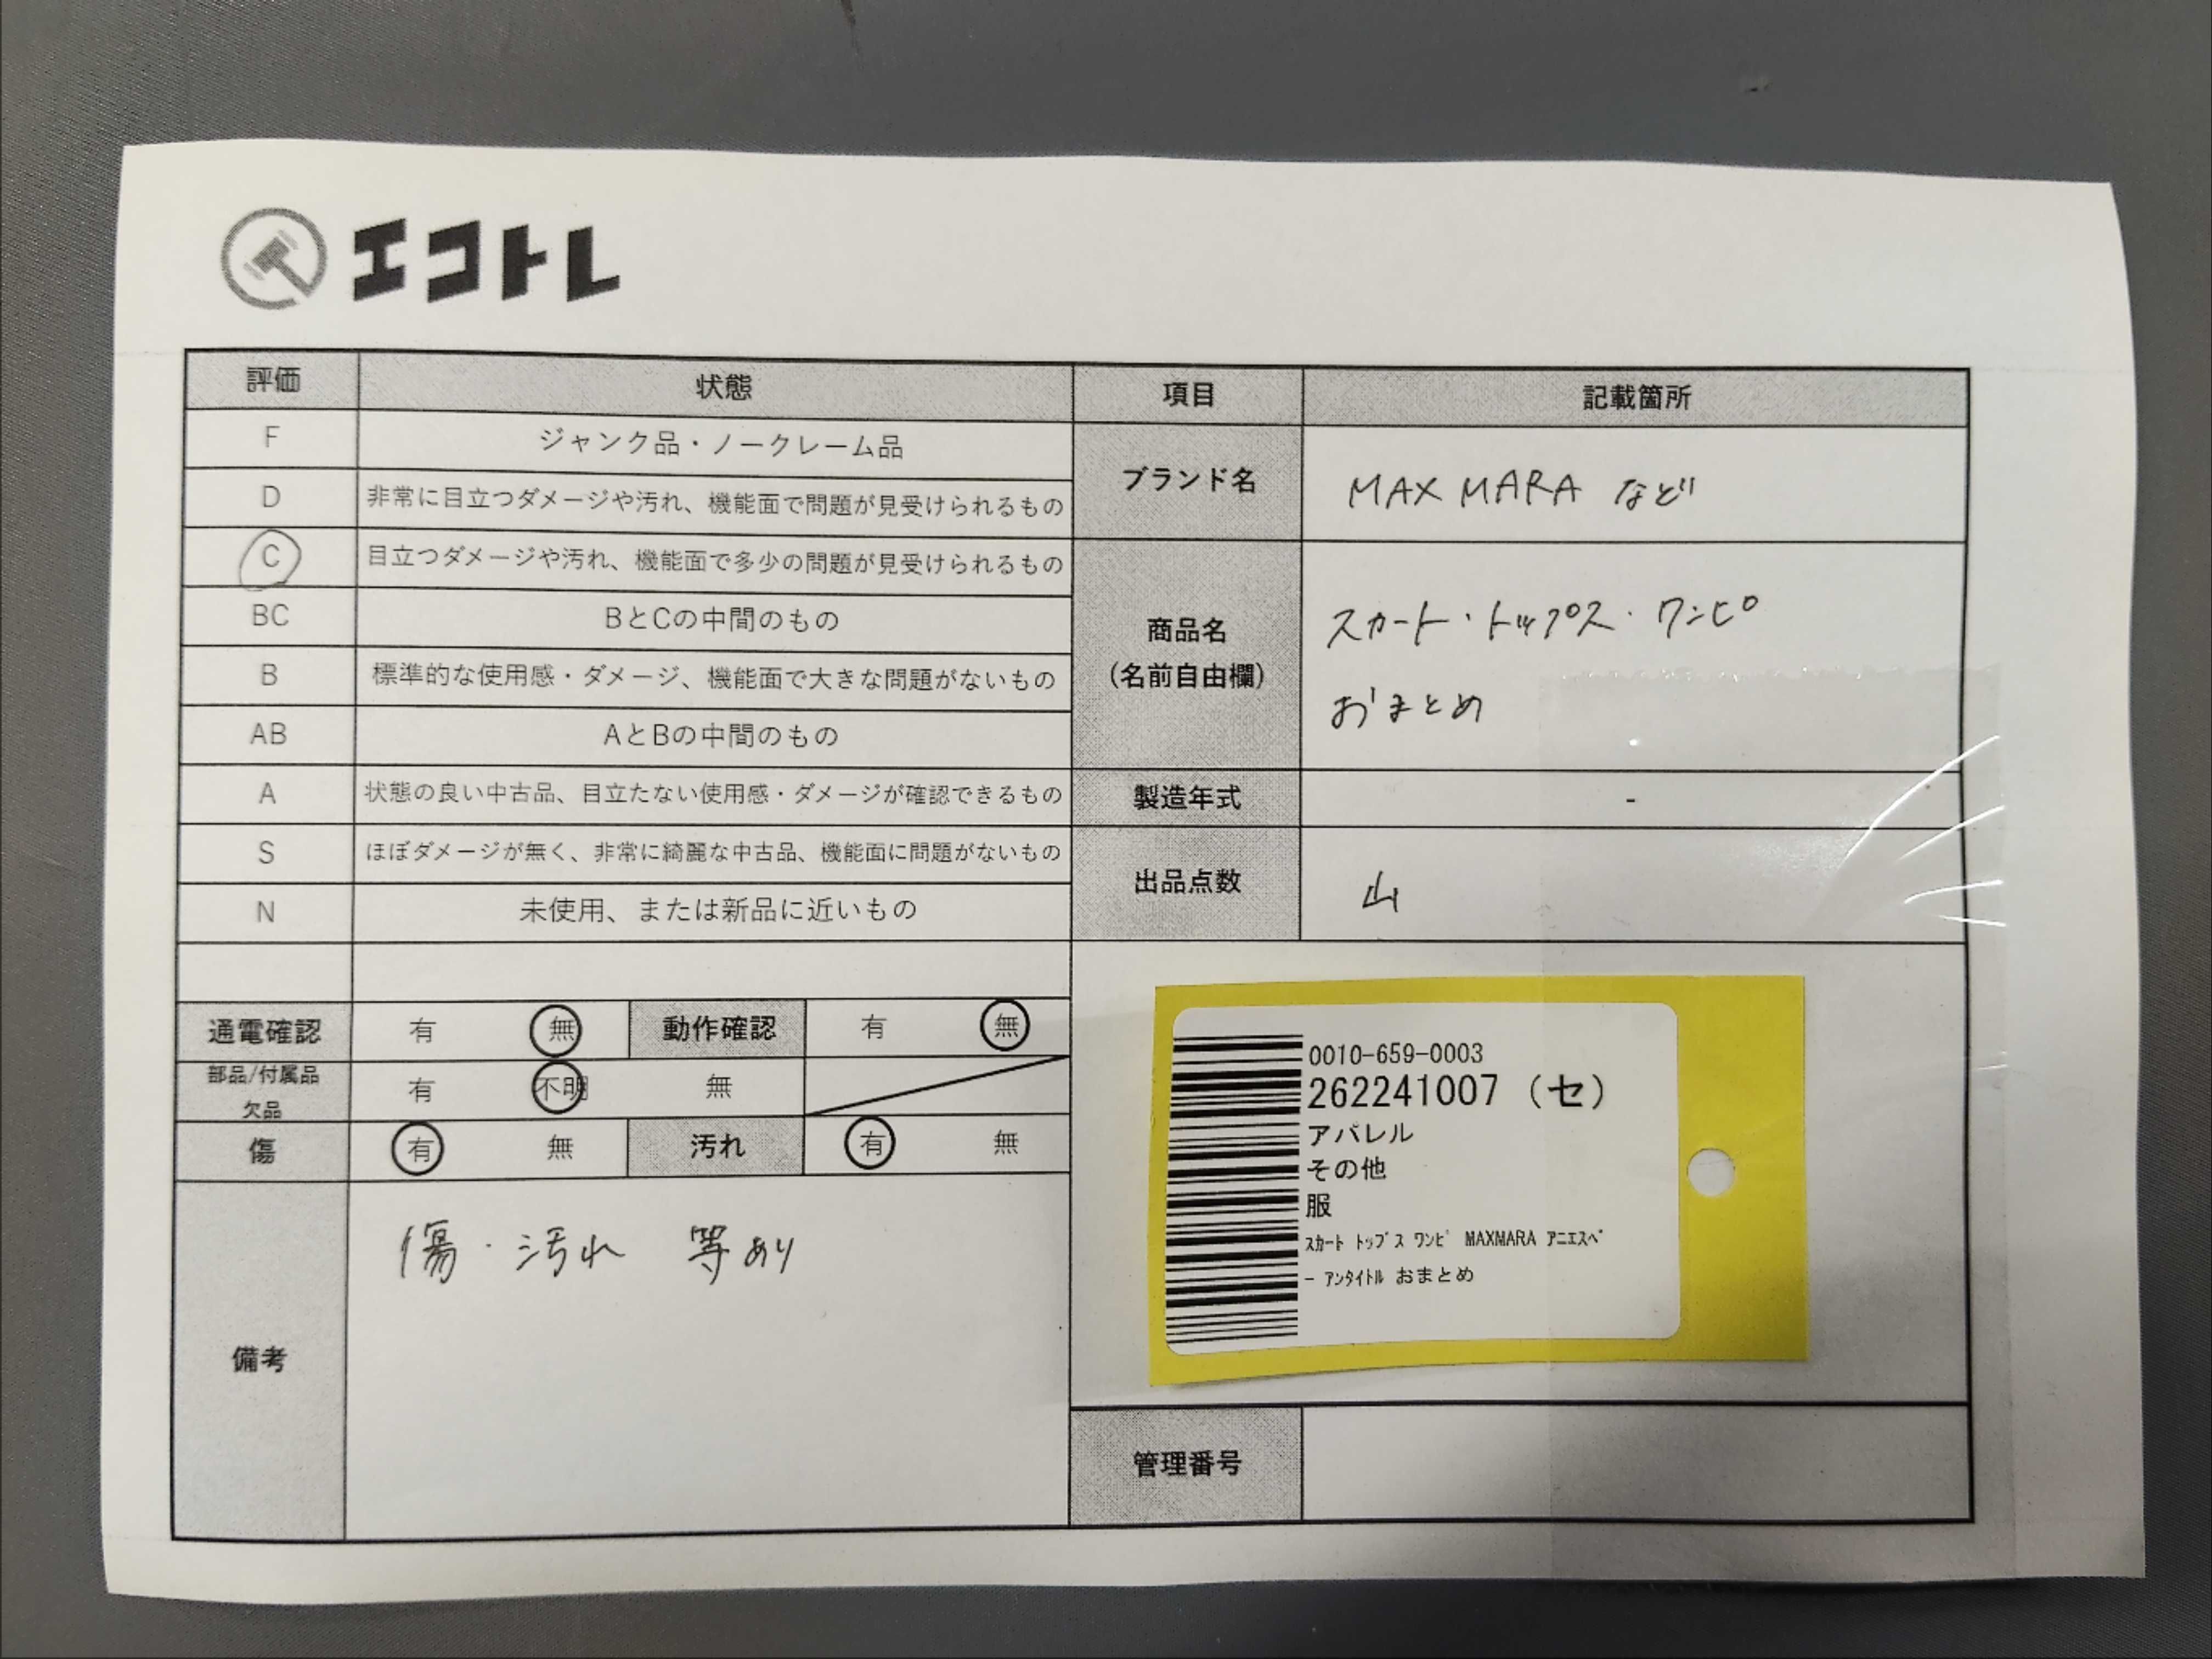 エコトレ
評価 状態 項目 記載箇所
F ジャンク品・ノークレーム品
D 非常に目立つダメージや汚れ、機能面で問題が見受けられるもの
C 目立つダメージや汚れ、機能面で多少の問題が見受けられるもの
BC BとCの中間のもの
B 標準的な使用感・ダメージ、機能面で大きな問題がないもの
AB AとBの中間のもの
A 状態の良い中古品、目立たない使用感・ダメージが確認できるもの
S ほぼダメージが無く、非常に綺麗な中古品、機能面に問題がないもの
N 未使用、または新品に近いもの
通電確認 有 無 動作確認 有 無
部品/付属品
欠品 有 不明 無
傷 有 無 汚れ 有 無
備考 傷・汚れ 等あり
ブランド名 MAX MARA など
商品名
(名前自由欄)
スカート・トップス・ワンピ
おまとめ
製造年式 -
出品点数 山
0010-659-0003
262241007 (セ)
アパレル
その他
服
スカート トップス ワンピ MAXMARA アニエスベ
- アンタイトル おまとめ
管理番号